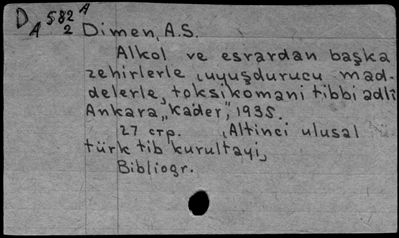 D 582 A
A 2 Dimen, A.S.
Alkol ve esrardan başka
zehirlerle, uyuşdurucu mad-
delerle, toksikomani tibbi adlî
Ankara, "Kader", 1935.
27 стр. (Altinci ulusal
türk tib kurultayi)
Bibliogr.